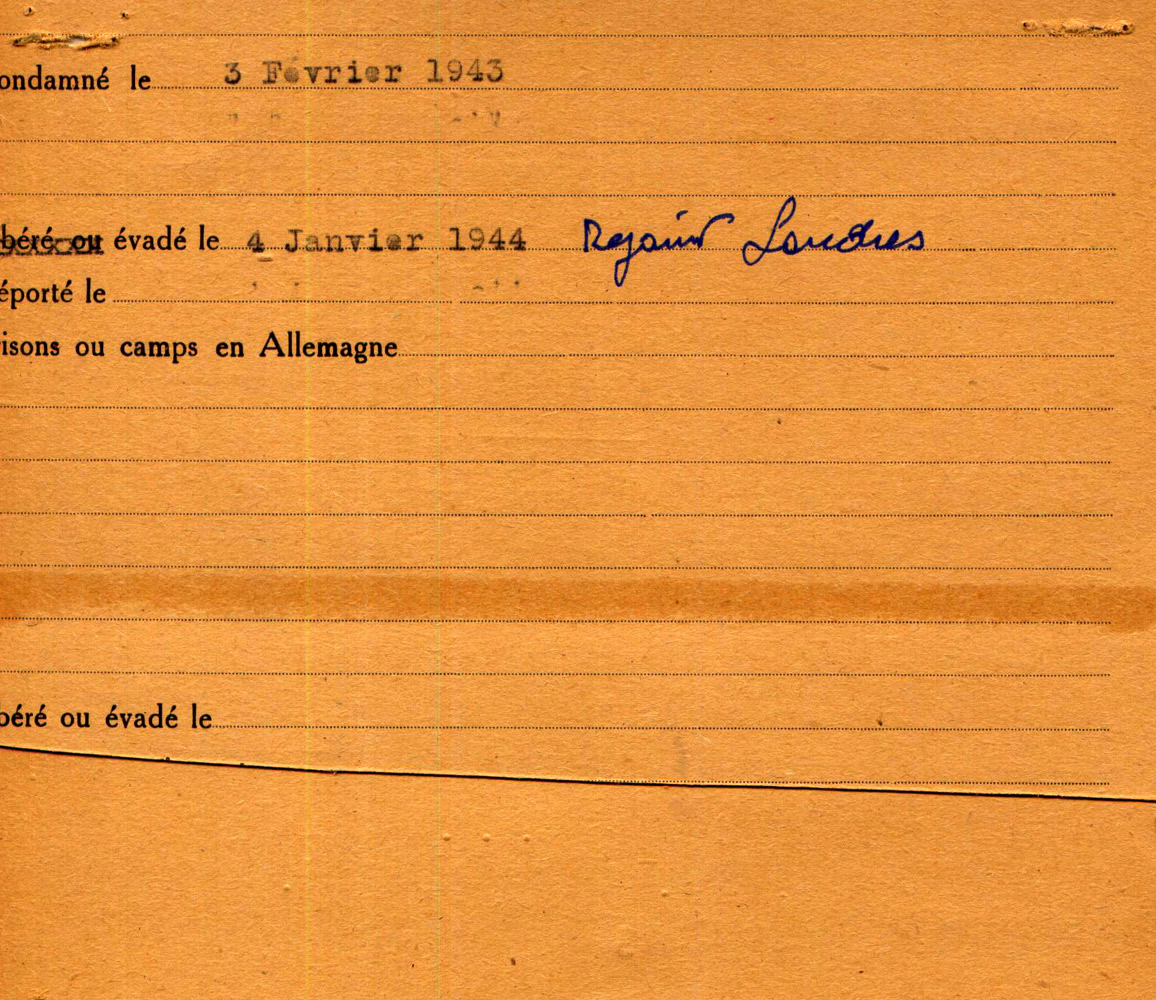 ondamné le 3 Février 1943
béré ou évadé le 4 Janvier 1944 Rejoint Londres
éporté le
isons ou camps en Allemagne
béré ou évadé le